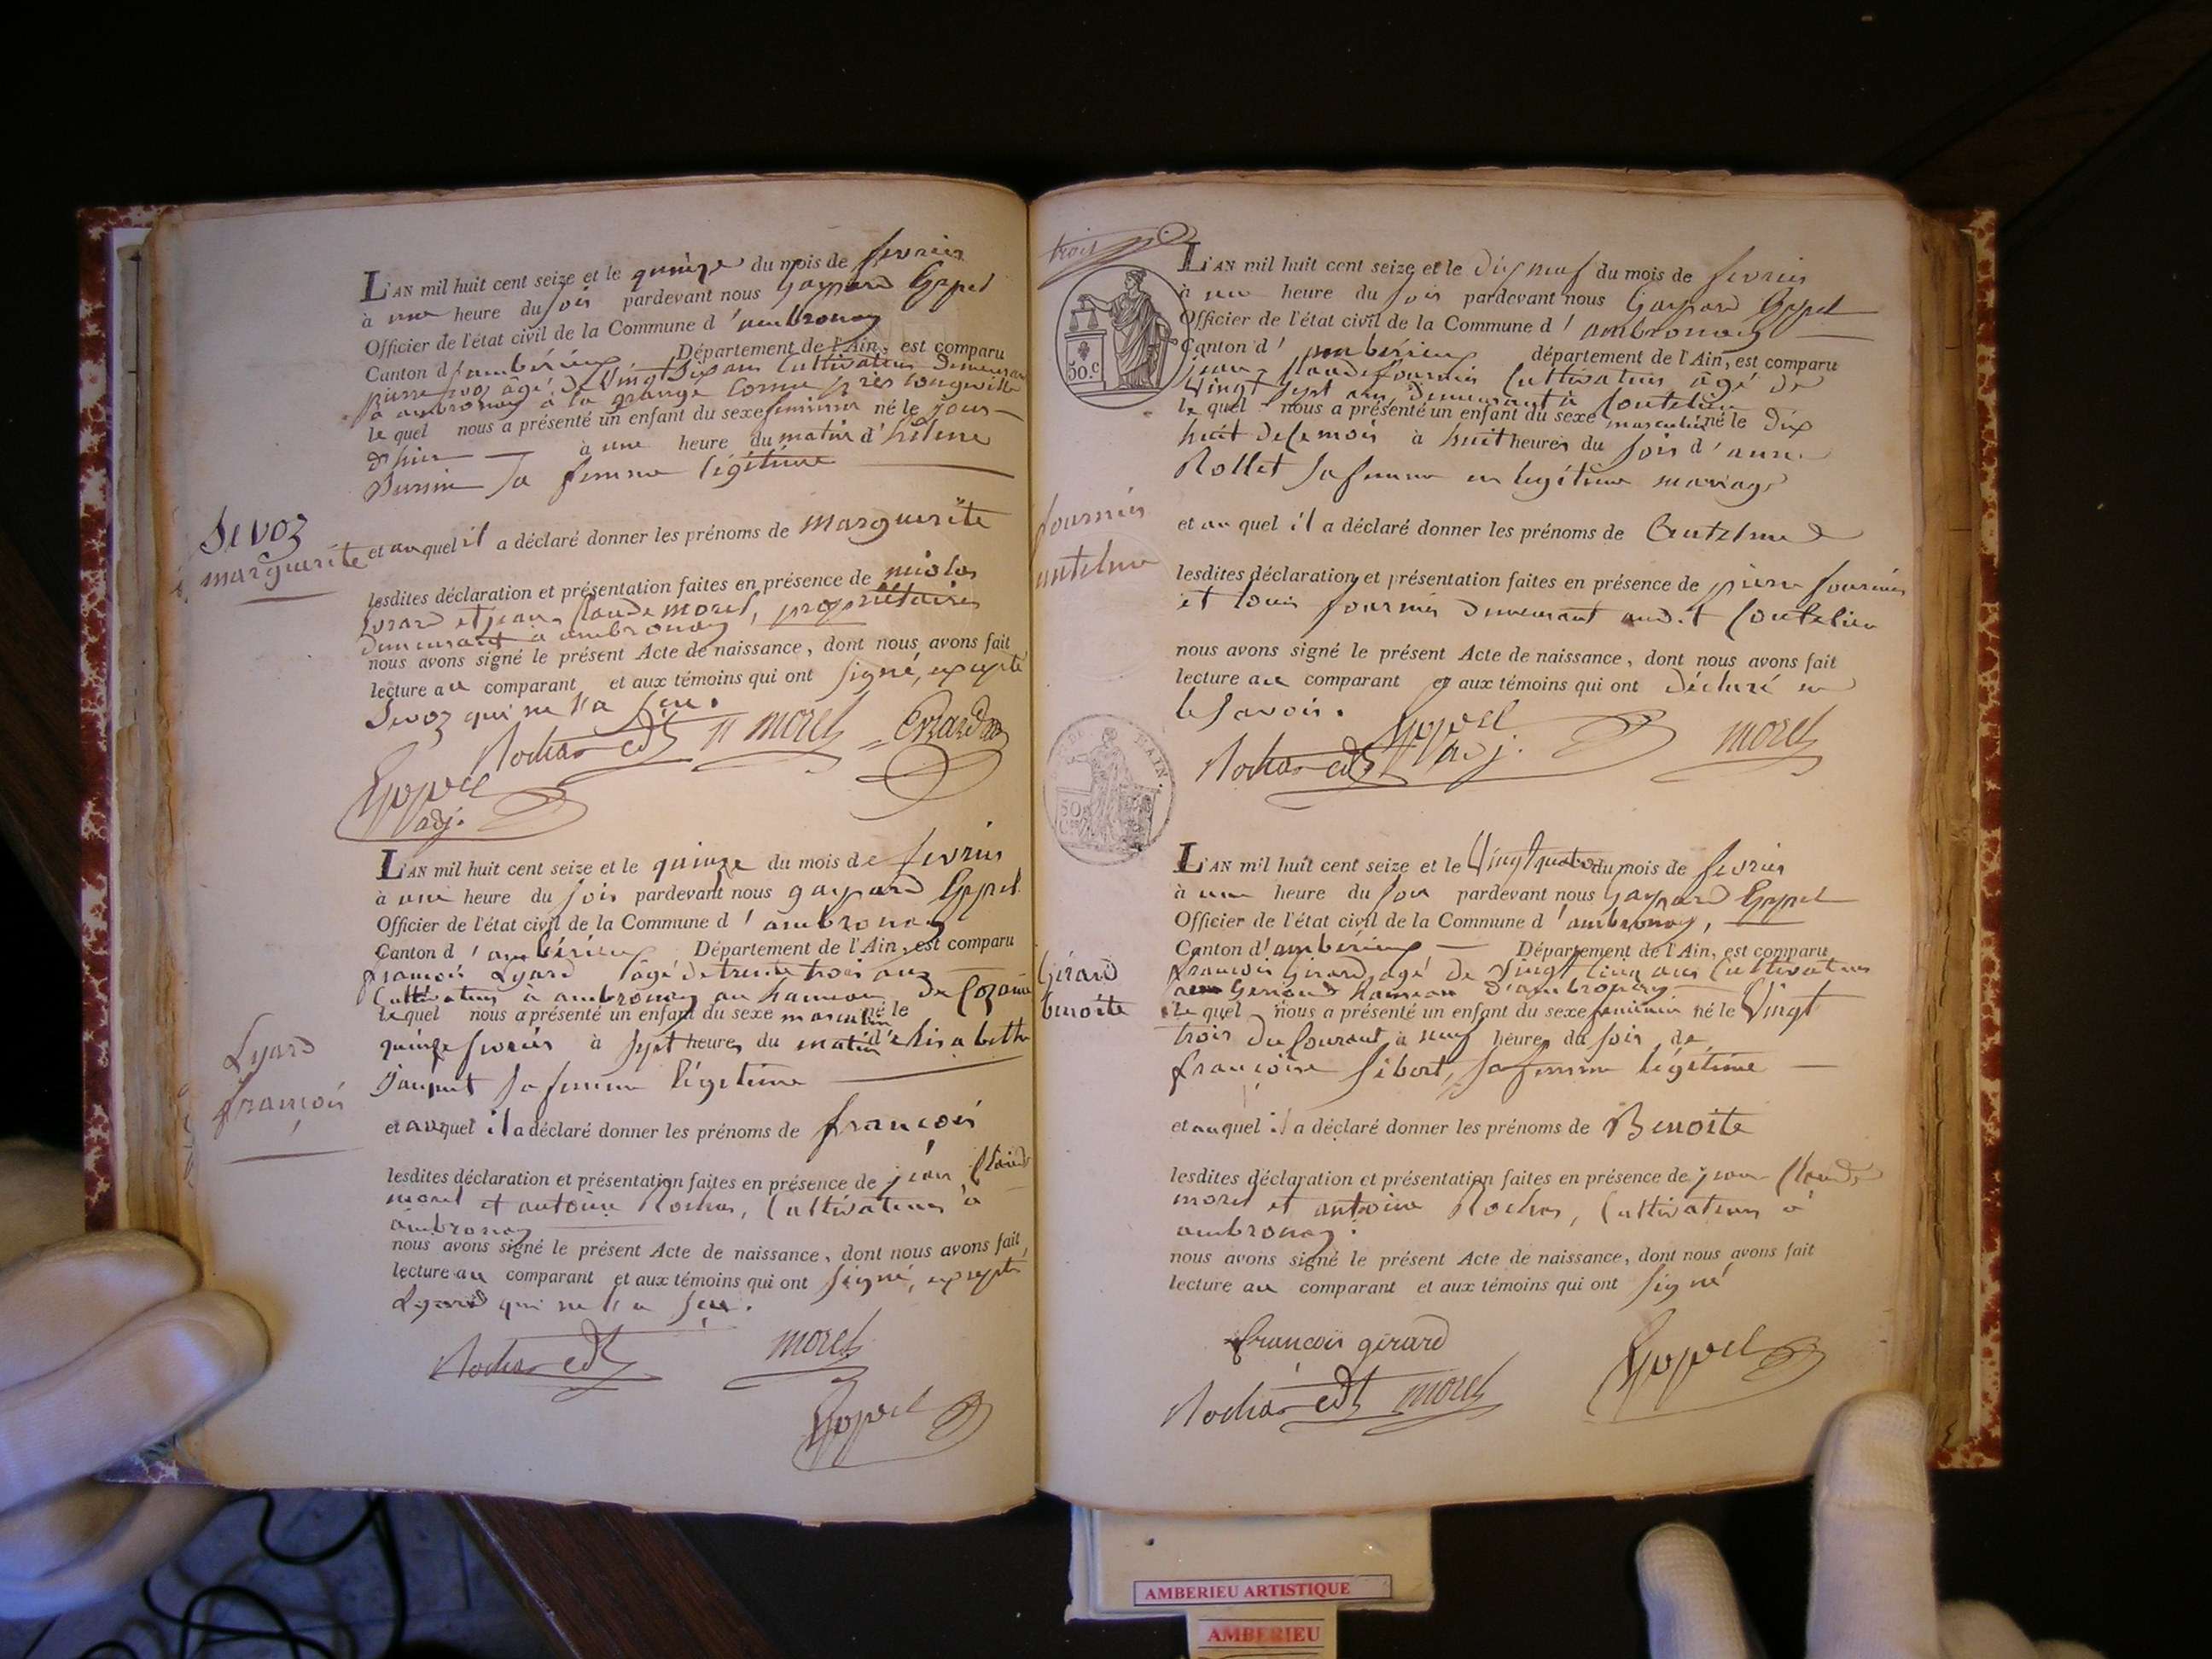 L'AN mil huit cent seize et le quinze du mois de fevrier
à une heure du soir pardevant nous Gaspard Goppel
Officier de l'état civil de la Commune d'ambronay
Canton d'ambérieux Département de l'Ain, est comparu
pierre Sevoz âgé de Vingt Six ans Cultivateur Demeurant
à ambronay à la grange Corme près longeville
le quel nous a présenté un enfant du sexe feminin né le jour
d'hier à une heure du matin d'hélène
sa femme légitime
Sevoz
marguerite
et auquel il a déclaré donner les prénoms de Marguerite
lesdites déclaration et présentation faites en présence de nicolas
Evrard et jean Claude morel, propriétaires
demeurant à ambronay
nous avons signé le présent Acte de naissance, dont nous avons fait
lecture au comparant et aux témoins qui ont signé, excepté
Sevoz qui ne l'a sçu.
morel Evrard
Goppel
adj.
L'AN mil huit cent seize et le quinze du mois de fevrier
à une heure du soir pardevant nous gaspard Goppel
Officier de l'état civil de la Commune d'ambronay
Canton d'ambérieux Département de l'Ain, est comparu
françois Lyard âgé de trente trois ans
Cultivateur à ambronay au hameau de Cozance
le quel nous a présenté un enfant du sexe masculin né le
quinze fevrier à sept heures du matin d'elisabeth
sa femme légitime
Lyard
françois
et auquel il a déclaré donner les prénoms de françois
lesdites déclaration et présentation faites en présence de jean Claude
morel et antoine Rochas, Cultivateurs à
ambronay
nous avons signé le présent Acte de naissance, dont nous avons fait
lecture au comparant et aux témoins qui ont signé, excepté
Lyard qui ne l'a sçu.
morel
Goppel
trois
50.c
L'AN mil huit cent seize et le dix neuf du mois de fevrier
à une heure du soir pardevant nous Gaspard Goppel
Officier de l'état civil de la Commune d'ambronay
Canton d'ambérieux département de l'Ain, est comparu
jean Claude fournier Cultivateur âgé de
Vingt Sept ans, demeurant à Coutelieu
le quel nous a présenté un enfant du sexe masculin né le Dix
huit de ce mois à huit heures du soir d'anne
Rollet sa femme en légitime mariage
fournier
antelme
et au quel il a déclaré donner les prénoms de Antelme
lesdites déclaration et présentation faites en présence de pierre fournier
et louis fournier demeurant audit Coutelieu
nous avons signé le présent Acte de naissance, dont nous avons fait
lecture au comparant et aux témoins qui ont déclaré ne
le savoir.
Goppel
adj. morel
L'AN mil huit cent seize et le Vingt quatre du mois de fevrier
à une heure du soir pardevant nous Gaspard Goppel
Officier de l'état civil de la Commune d'ambronay,
Canton d'ambérieux Département de l'Ain, est comparu
françois Girard, agé de Vingt Cinq ans Cultivateur
hameau d'ambronay
le quel nous a présenté un enfant du sexe feminin né le Vingt
trois du Courant à neuf heures du soir de
françoise Sibert, sa femme légitime
Girard
benoite
et au quel il a déclaré donner les prénoms de Benoite
lesdites déclaration et présentation faites en présence de jean Claude
morel et antoine Rochas, Cultivateurs à
ambronay.
nous avons signé le présent Acte de naissance, dont nous avons fait
lecture au comparant et aux témoins qui ont signé
françois girard
morel Goppel
AMBERIEU ARTISTIQUE
AMBERIEU